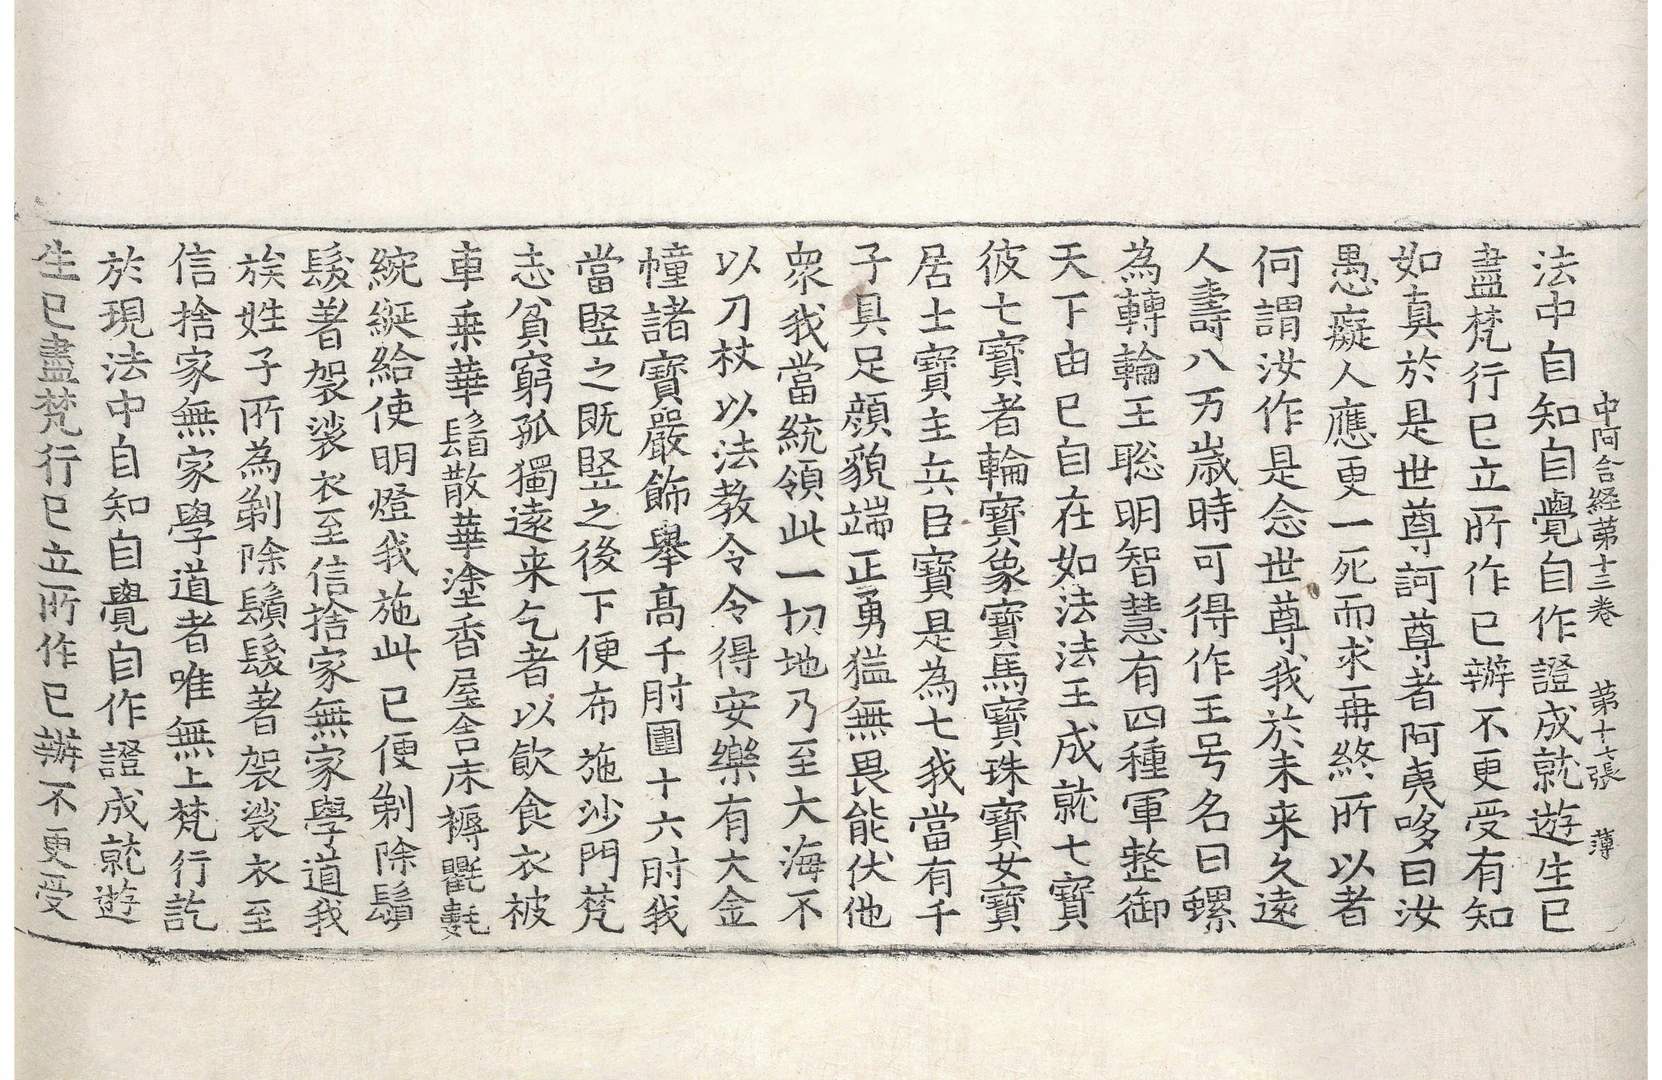 中阿含経苐十三卷　苐十六張　薄
法中自知自覺自作證成就遊生已
盡梵行已立所作已辦不更受有知
如真於是世尊訶尊者阿夷哆曰汝
愚癡人應更一死而求再終所以者
何謂汝作是念世尊我於未来久遠
人壽八万歲時可得作王号名曰螺
為轉輪王聡明智慧有四種軍整御
天下由已自在如法法王成就七寶
彼七寶者輪寶象寶馬寶珠寶女寶
居士寶主兵臣寶是為七我當有千
子具足顔貌端正勇猛無畏能伏他
衆我當統領此一切地乃至大海不
以刀杖以法教令令得安樂有大金
幢諸寶嚴飾舉髙千肘圍十六肘我
當竪之既竪之後下便布施沙門梵
志貧窮孤獨遠来乞者以飲食衣被
車乗華鬘散華塗香屋舍床褥氍毹
綩綖給使明燈我施此已便剃除鬚
髮著袈裟衣至信捨家無家學道我
族姓子所為剃除鬚髮著袈裟衣至
信捨家無家學道者唯無上梵行訖
於現法中自知自覺自作證成就遊
生已盡梵行已立所作已辦不更受